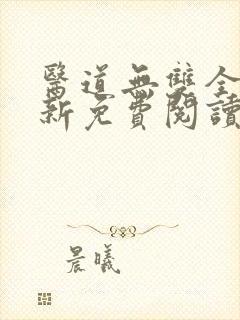 醫道無雙全
新免費閱讀
晨曦